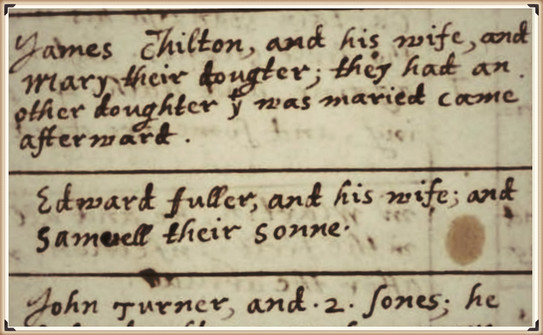 James Chilton, and his wife, and
Mary their dougter; they had an
other doughter yͭ was maried came
afterward.
Edward fuller, and his wife; and
Samuell their sonne.
John Turner, and .2. sones; he